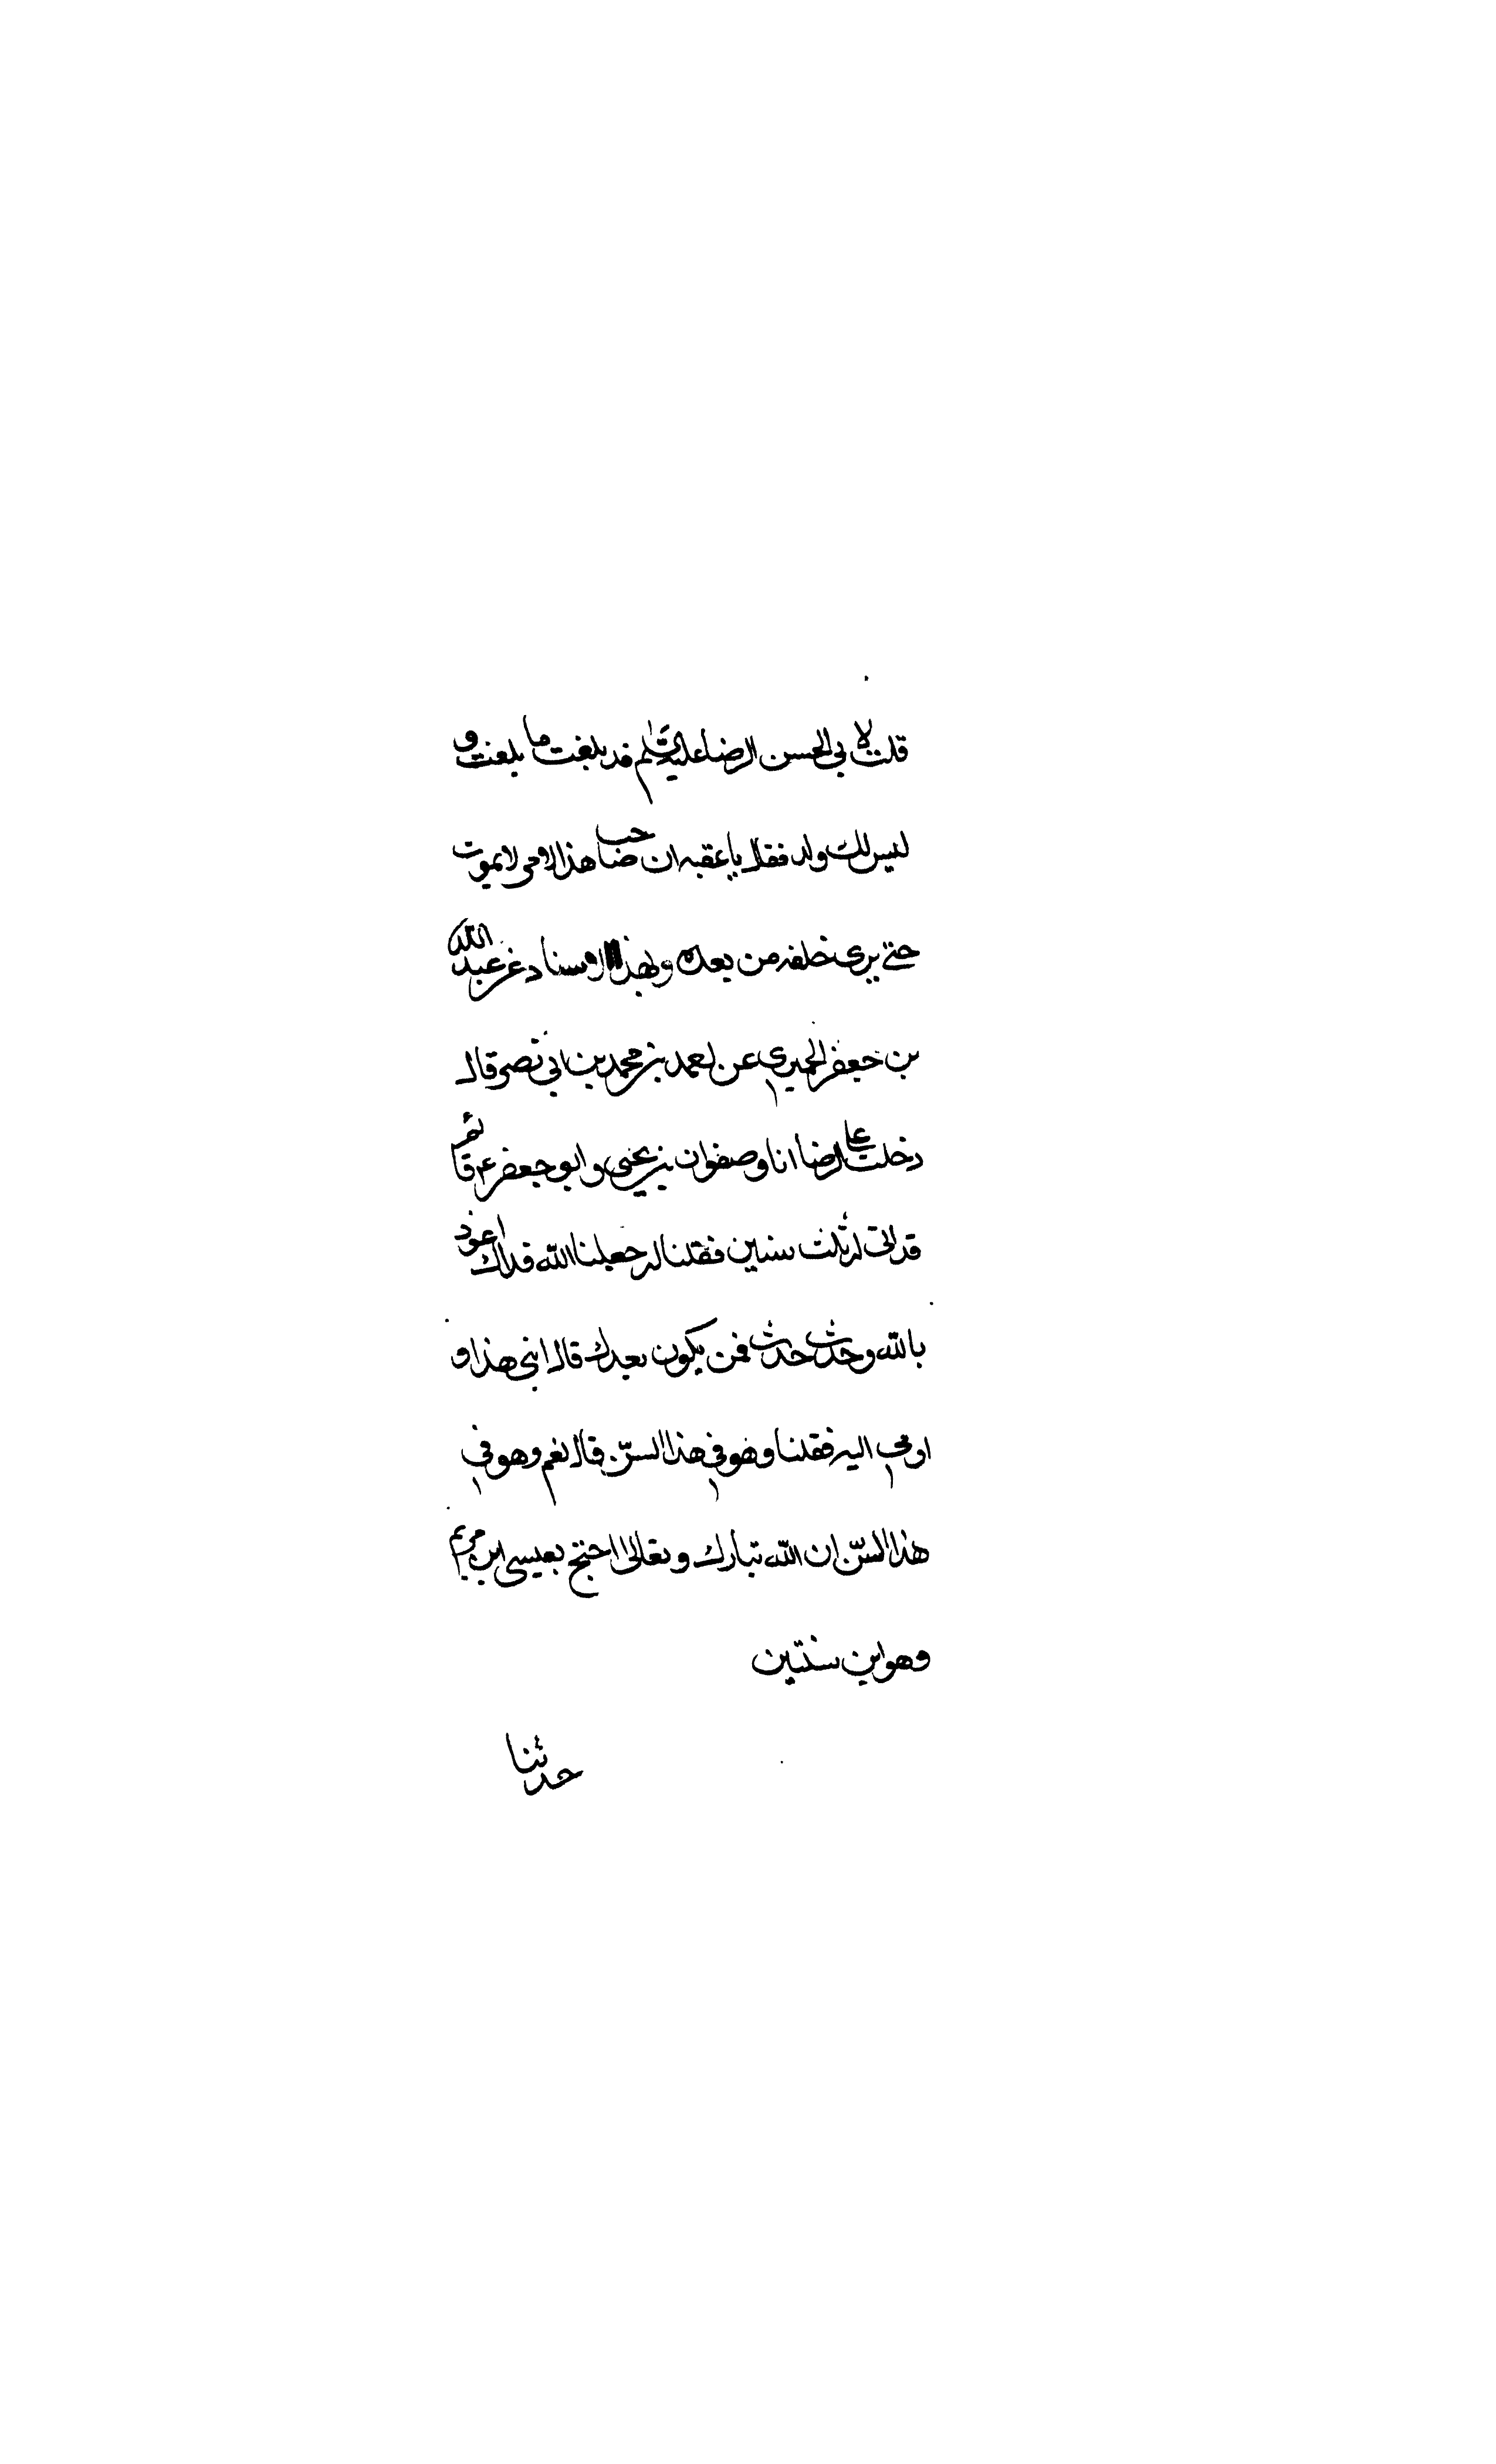 قلت لابي الحسن الرضا عليه السلم قد بلغت ما بلغت و
ليس لك ولد فقال يا عقبه ان صاحب هذا الامر لا يموت
حتى يرى خلفه من بعده وبهذا الاسناد عن عبد الله
بن جعفر الحميري عن احمد بن محمد بن ابي نصر قال
دخلت على الرضا انا وصفوان بن يحيى وابو جعفر ع قائم
قد اتى له ثلث سنين فقلنا له جعلنا الله فداك اعوذ
بالله وحدث حدث فمن يكون بعدك قال ابني هذا و
اومى اليه فقلنا وهو في هذا السن قال نعم وهو في
هذا السن ان الله تبارك وتعالى احتج بعيسى ابن مريم
وهو ابن سنتين
حدثنا